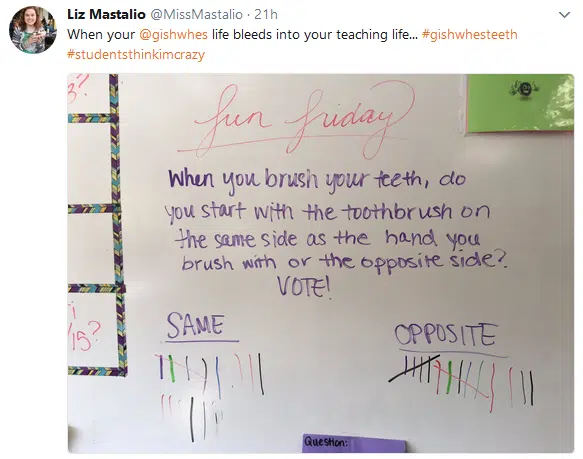 Liz Mastalio @MissMastalio · 21h
When your @gishwhes life bleeds into your teaching life... #gishwhesteeth
#studentsthinkimcrazy
3?
fun friday
When you brush your teeth, do
you start with the toothbrush on
the same side as the hand you
brush with or the opposite side?
VOTE!
/15?
SAME
OPPOSITE
Question: